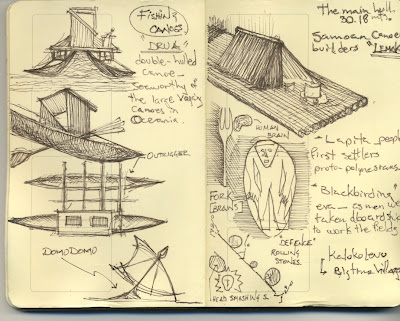 Fishing
Canoes.
DRUA
double-hulled
canoe-
Seaworthy of
the large Voyaging
Canoes in
Oceania.
OUTRIGGER
DOMODOMO
The main hull
30.18
Samoan Canoe
builders
HUMAN
BRAIN
FORK
BRAINS
DEFENCE
ROLLING
STONES.
HEAD SMASHINGS.
Lapita people
first settlers
proto-polynesians
"Blackbirding"
era - as men were
taken aboard ship
to work the fields